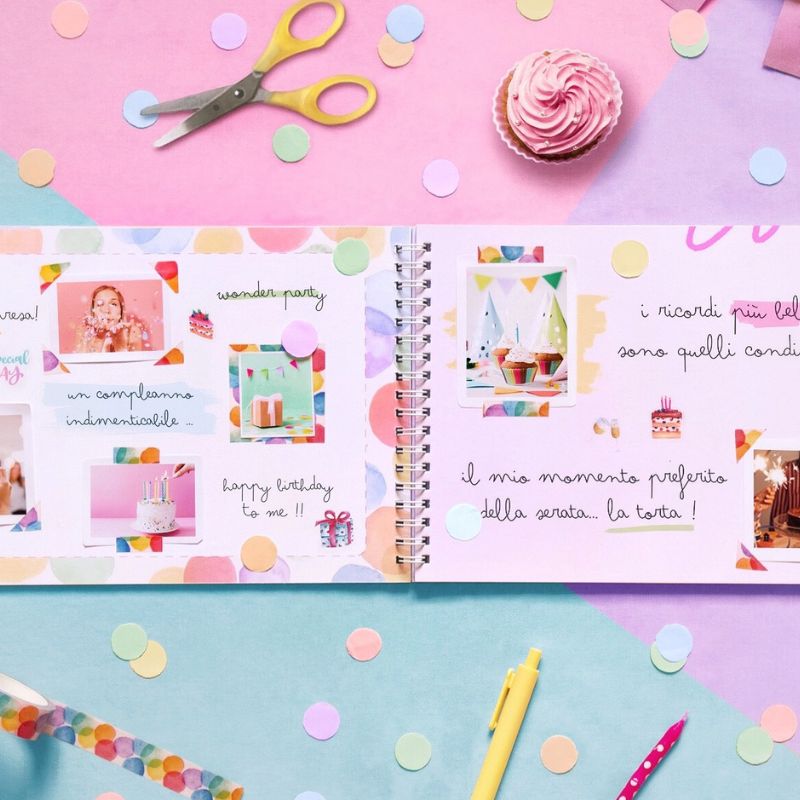 wonder party
special
DAY
un compleanno
indimenticabile ...
happy birthday
to me !!
i ricordi più
sono quelli
il mio momento preferito
della serata... la torta !